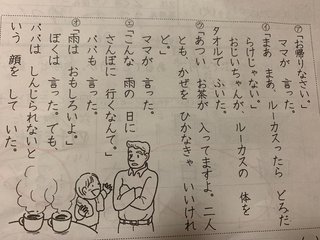 ㋐「お帰りなさい。」
ママが 言った。
㋑「まあ まあ、ルーカスったら どろだ
らけじゃない。」
おじいちゃんが、ルーカスの 体を
タオルで ふいた。
㋒「あつい お茶が 入ってますよ。二人
とも かぜを ひかなきゃ いいけれ
ど。」
ママが 言った。
㋓「こんな 雨の 日に
さんぽに 行くなんて。」
パパも 言った。
㋔「雨は おもしろいよ。」
ぼくは 言った。でも、
パパは しんじられないと
いう 顔を して いた。